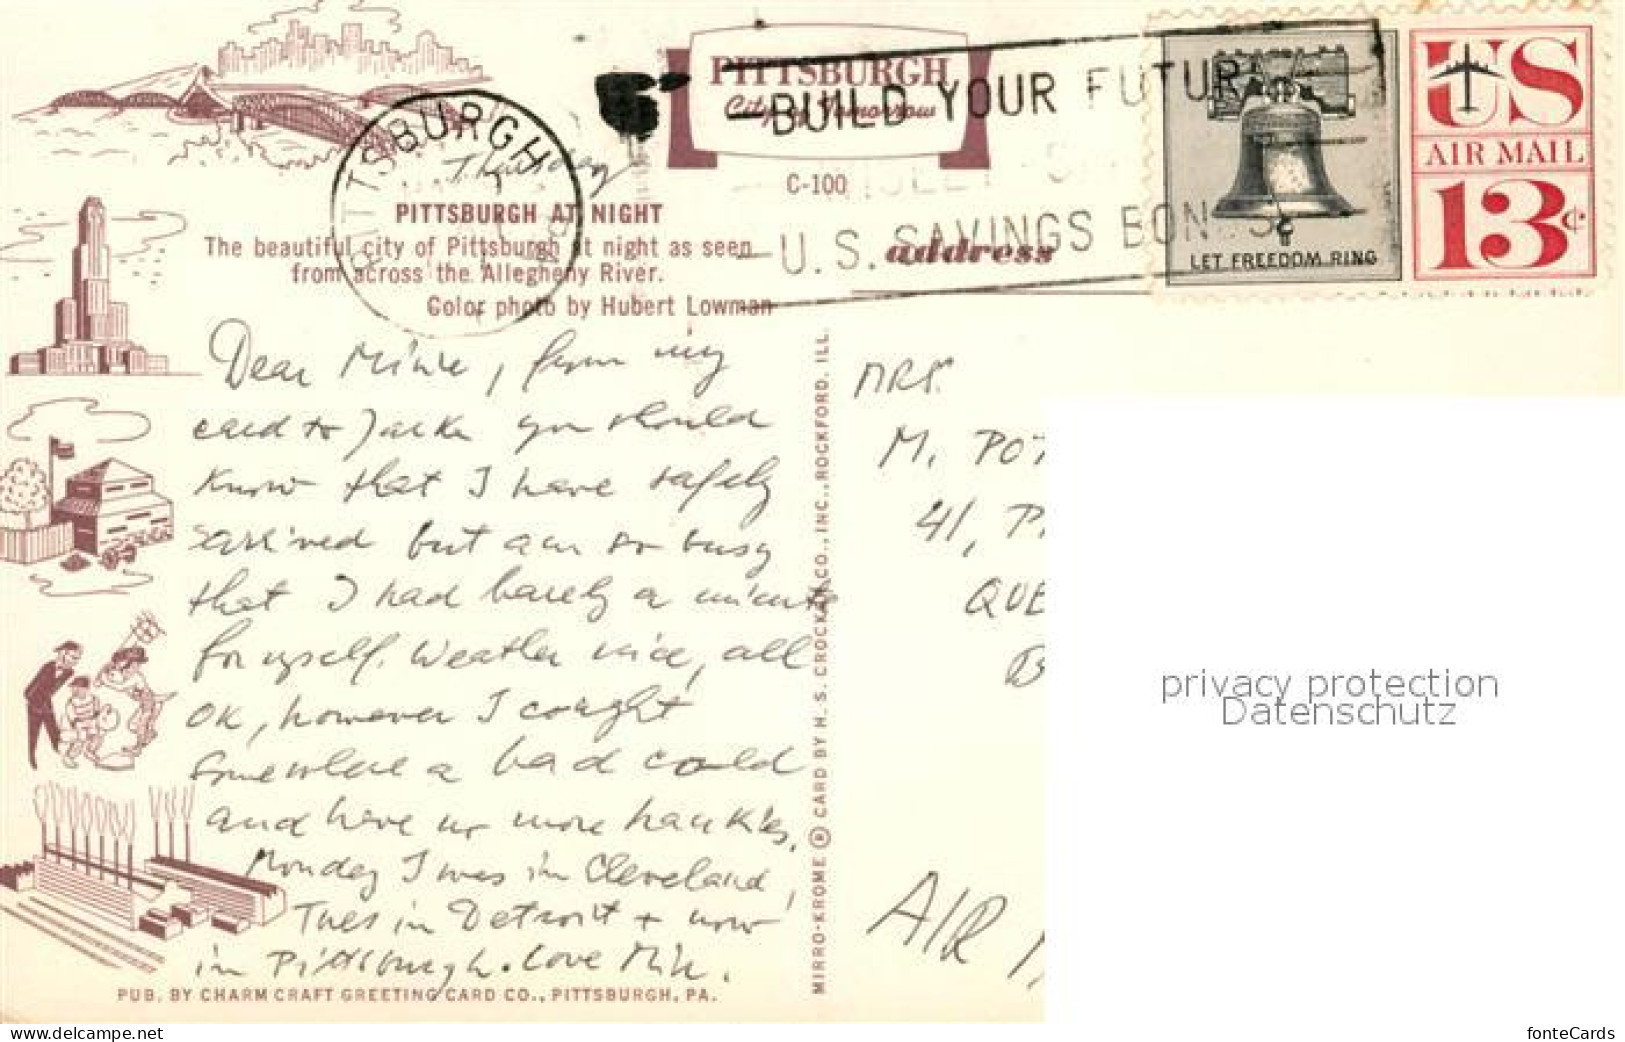 PITTSBURGH
City of Tomorrow
BUILD YOUR FUTUR
U.S. SAVINGS BONDS
PITTSBURGH
Thursday
C-100
US
AIR MAIL
13¢
LET FREEDOM RING
PITTSBURGH AT NIGHT
The beautiful city of Pittsburgh at night as seen
from across the Allegheny River.
Color photo by Hubert Lowman
address
Dear , from my
card to you should
know that I have safely
arrived but am so busy
that I had barely a minute
for myself. Weather nice, all
OK, however I caught
somewhere a bad could
and have no more hankies.
Monday I was in Cleveland,
Tues in Detroit + now
in Pittsburgh. Love
PUB. BY CHARM CRAFT GREETING CARD CO., PITTSBURGH, PA.
MIRRO-KROME ® CARD BY H. S. CROCKER CO., INC., ROCKFORD, ILL.
MRS.
M. POT
41, P
QUE
B
AIR M
privacy protection
Datenschutz
www.delcampe.net
fonteCards